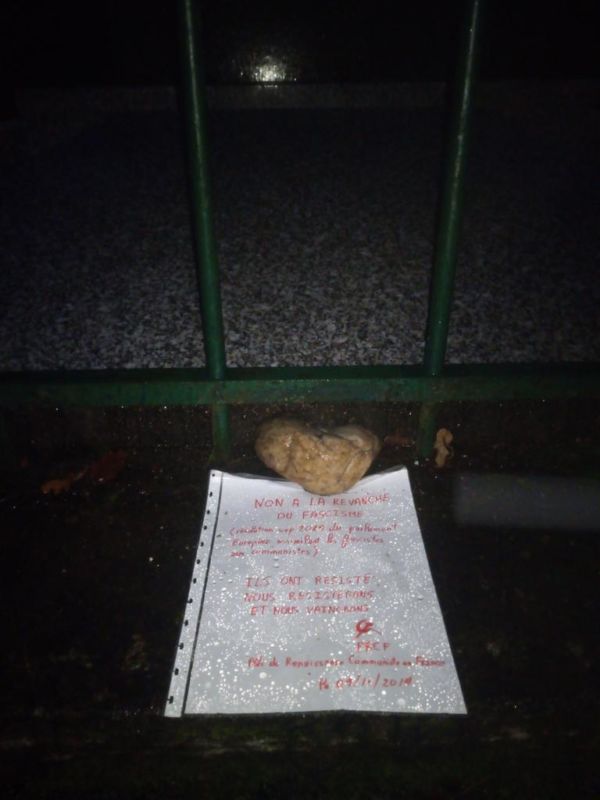 NON A LA REVANCHE
DU FASCISME
(résolution sep 2019 du parlement
Européen les
aux communistes)
ILS ONT RESISTE,
NOUS RESISTERONS
ET NOUS VAINCRONS
PRCF
Pôle de Renaissance Communiste en France
le 09/11/2019